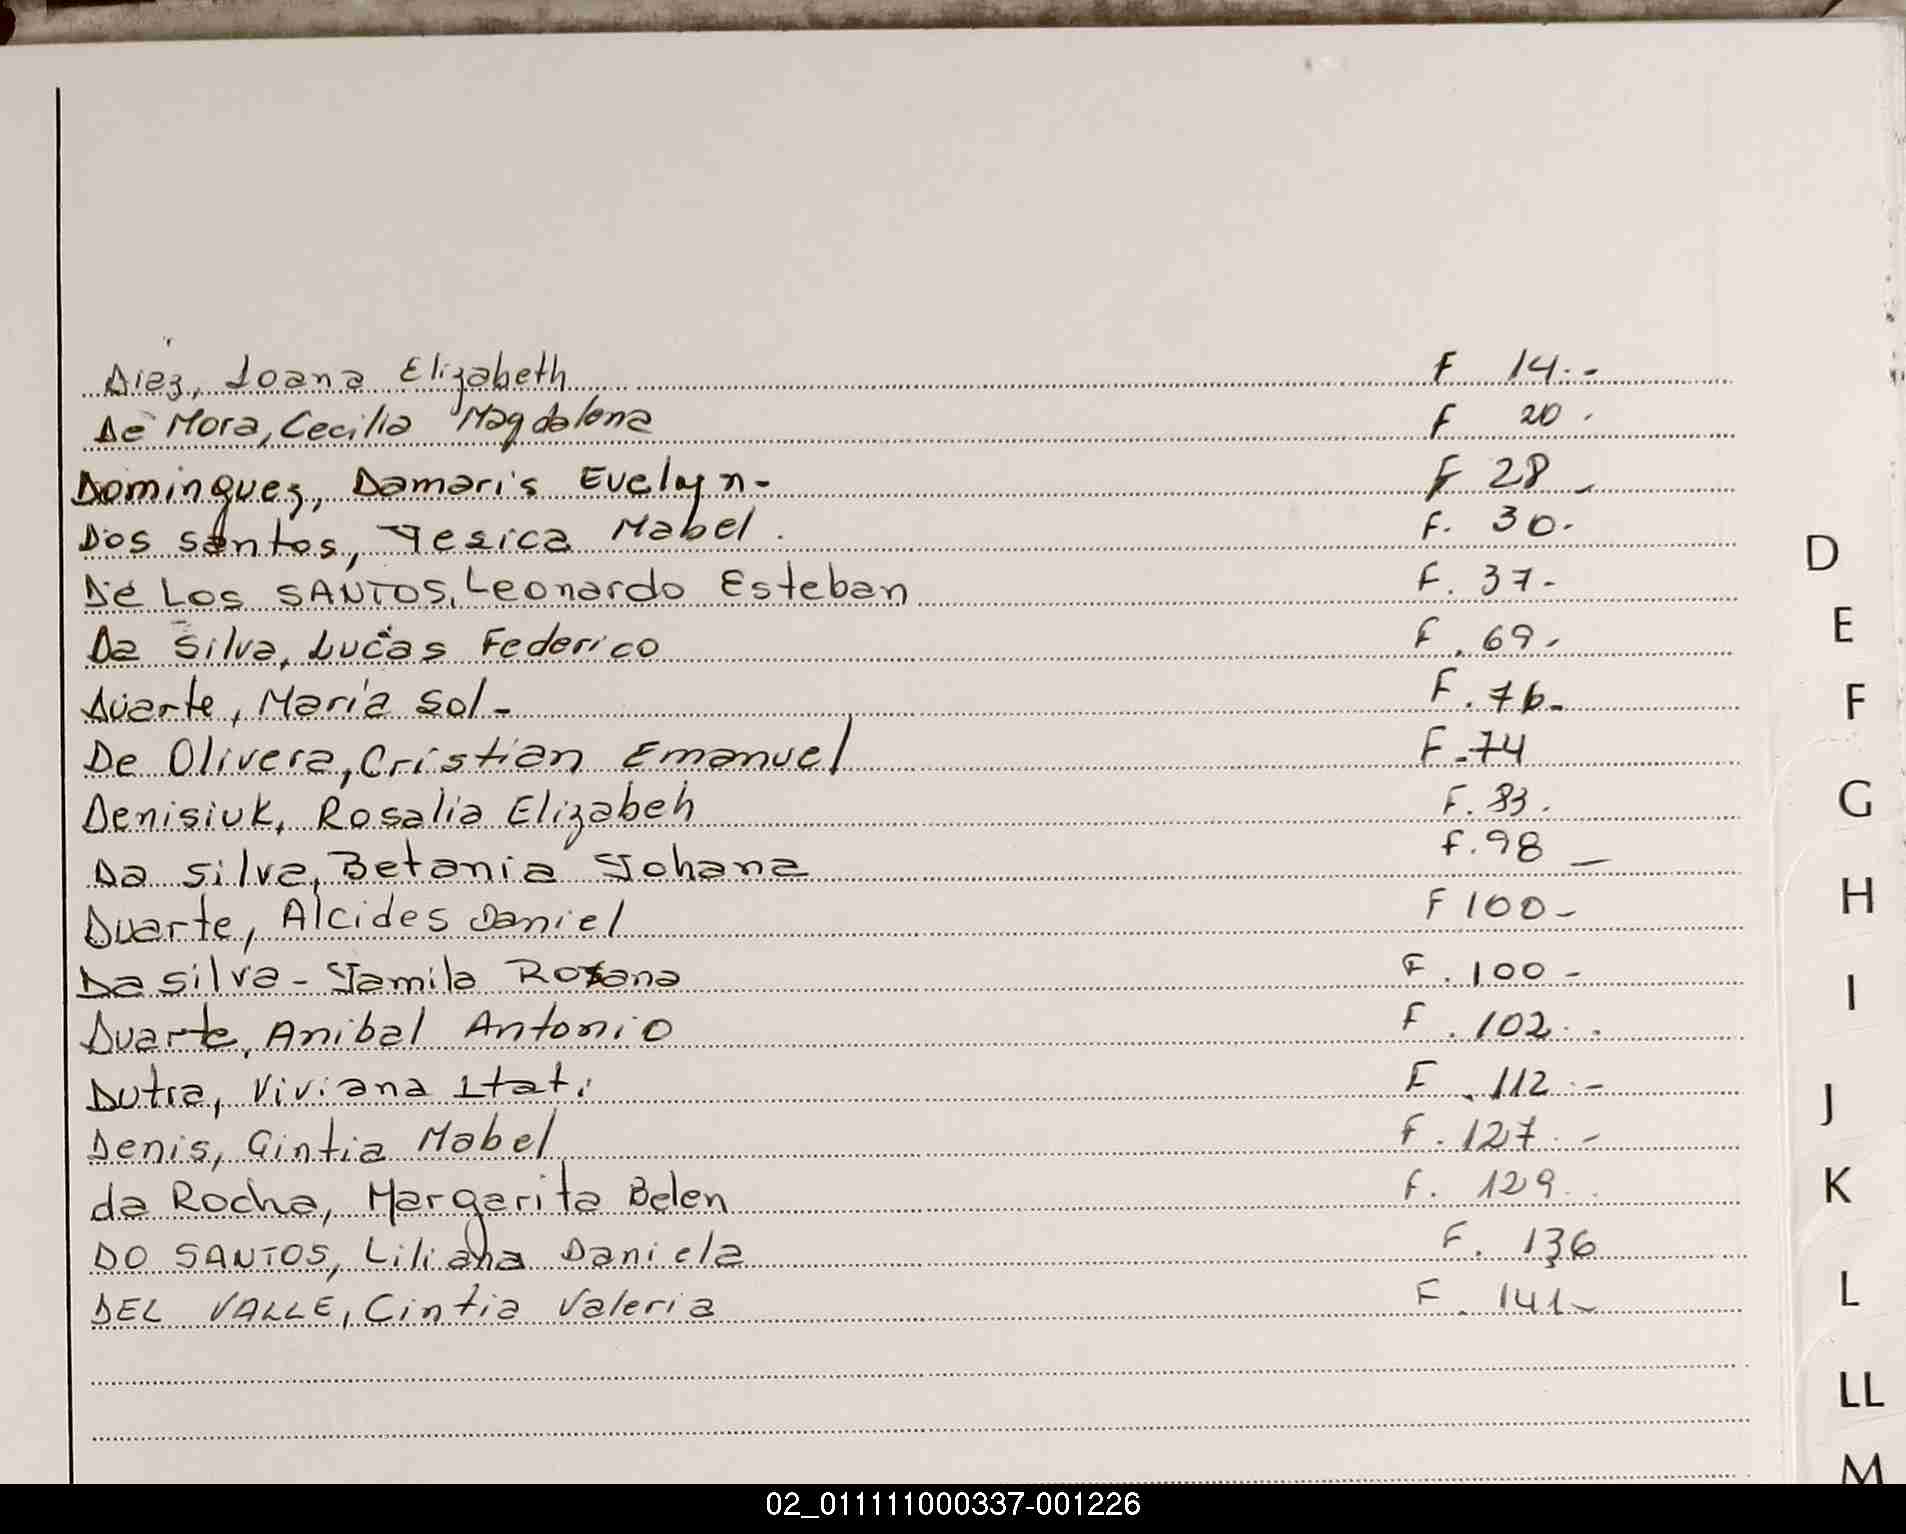 Diez, Ioana Elizabeth F 14.-
De Mora, Cecilia Magdalena F 20.
Dominguez, Damaris Evelyn- F 28-
Dos santos, Yesica Mabel. F. 30.
De Los SANTOS, Leonardo Esteban F. 37-
Da Silva, Lucas Federico F. 69.
Duarte, María Sol- F. 76-
De Olivera, Cristian Emanuel F. 74
Denisiuk, Rosalia Elizabeh F. 83.
Da silva, Betania Johana F. 98-
Duarte, Alcides Daniel F 100-
Da silva - Jamila Roxana F. 100-
Duarte, Anibal Antonio F. 102.
Dutra, Viviana Itati F. 112.-
Denis, Cintia Mabel F. 127.-
da Rocha, Margarita Belen F. 129.
DO SANTOS, Liliana Daniela F. 136
DEL VALLE, Cintia Valeria F. 141-
D
E
F
G
H
I
J
K
L
LL
M
02_011111000337-001226